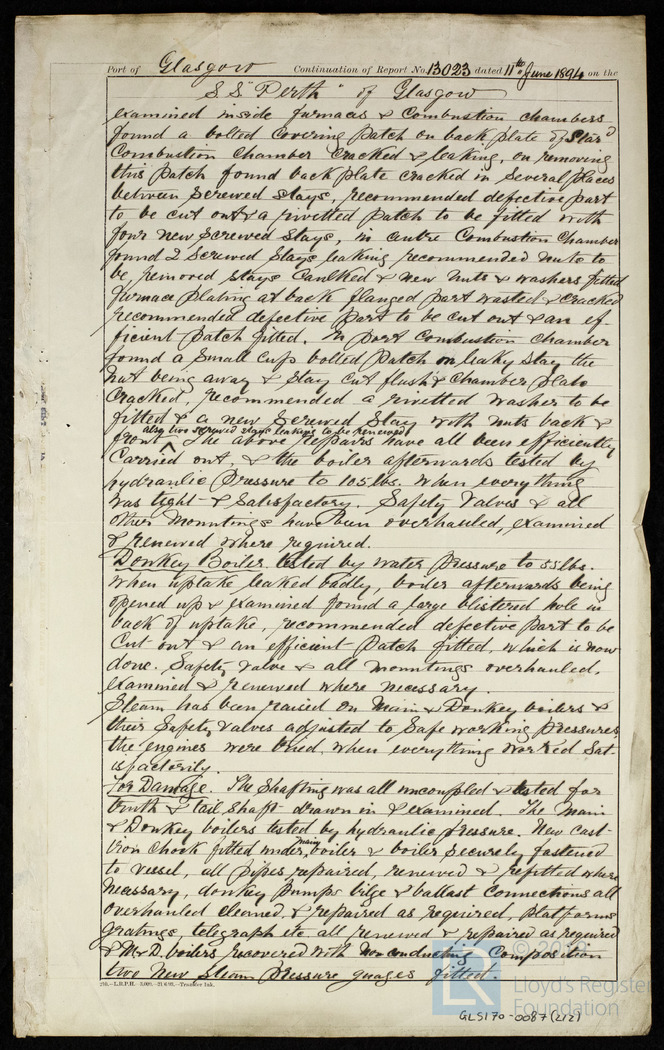 Port of Glasgow Continuation of Report No. 13023 dated 11th June 1894 on the
S.S "Perth" of Glasgow
examined inside furnaces & Combustion chambers
found a bolted covering patch on back plate of Starbd
Combustion chamber cracked & leaking, on removing
this patch found back plate cracked in several places
between screwed stays, recommended defective part
to be cut out & a rivetted patch to be fitted with
four new screwed stays, in centre Combustion chamber
found 2 screwed stays leaking recommended nuts to
be removed stays caulked & new nuts & washers fitted
furnace plating at back flanged part wasted & cracked
recommended defective part to be cut out & an ef-
ficient patch fitted. In port Combustion chamber
found a small cup bolted patch on leaky stay the
nut being away & stay cut flush & chamber plate
cracked, recommended a rivetted washer to be
fitted & a new screwed stay with nuts back &
also two screwed stays leaking to be renewed
front ^ The above repairs have all been efficiently
Carried out, & the boiler afterwards tested by
hydraulic pressure to 105 lbs. when everything
was tight & satisfactory. Safety Valves & all
other mountings have been overhauled, examined
& renewed where required.
Donkey Boiler tested by water pressure to 55 lbs.
When uptake leaked badly, boiler afterwards being
opened up & examined found a large blistered hole in
back of uptake, recommended defective part to be
cut out & an efficient patch fitted, which is now
done. Safety valve & all mountings overhauled,
examined & renewed where necessary.
Steam has been raised on Main & Donkey boilers &
their safety valves adjusted to safe working pressures
the engines were tried, when everything worked sat-
isfactorily.
For Damage. The shafting was all uncoupled & tested for
truth & tail shaft drawn in & examined. The main
& Donkey boilers tested by hydraulic pressure. New cast-
main
iron chock fitted under ^ boiler & boiler securely fastened
to vessel, all pipes repaired, renewed & refitted where
necessary, donkey pumps bilge & ballast connections all
overhauled cleaned, & repaired as required, platforms
gratings, telegraph etc all renewed & repaired as required
& M & D. boilers recovered with non conducting Composition
two new steam pressure guages fitted.
210.—L.R.P.H.—3,000.—21.6.93.—Transfer Ink.
© 2019
LR
Lloyd's Register
Foundation
GLS170-0087(2/2)